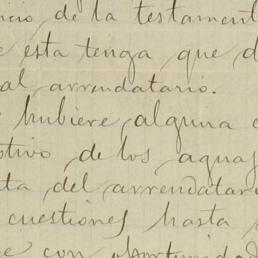 ncio, de la testament
e esta tenga que d
al arrendatario.
e hubiere alguna c
stivo de los aguas
ta del arrendatar
cuestiones hasta
e con oportunidad